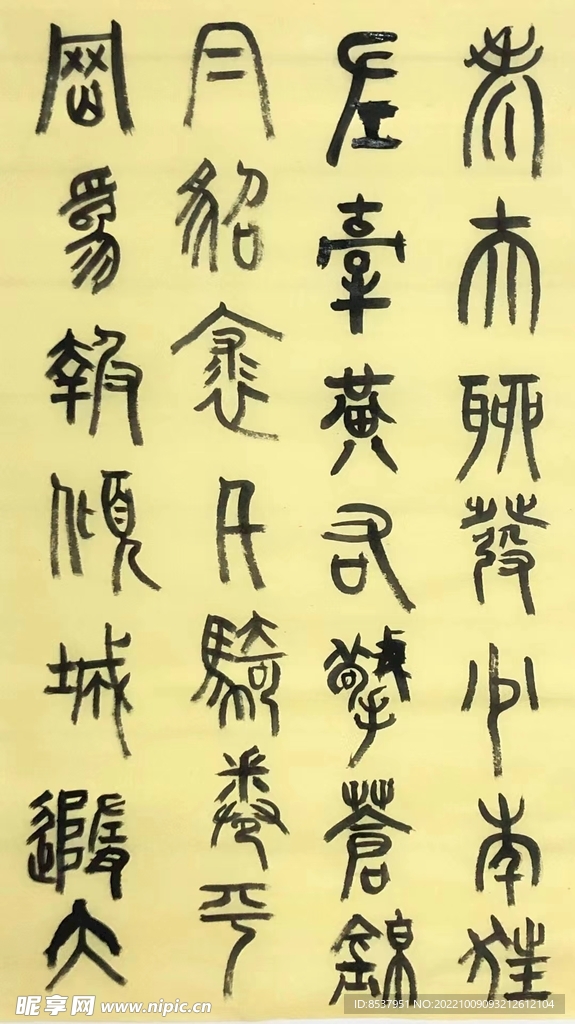 老夫聊發少年狂
左牽黃右擎蒼錦
冃貂裘千騎卷平
岡為報傾城隨太
昵享网 www.nipic.cn
ID:8537951 NO:20221009093212612104